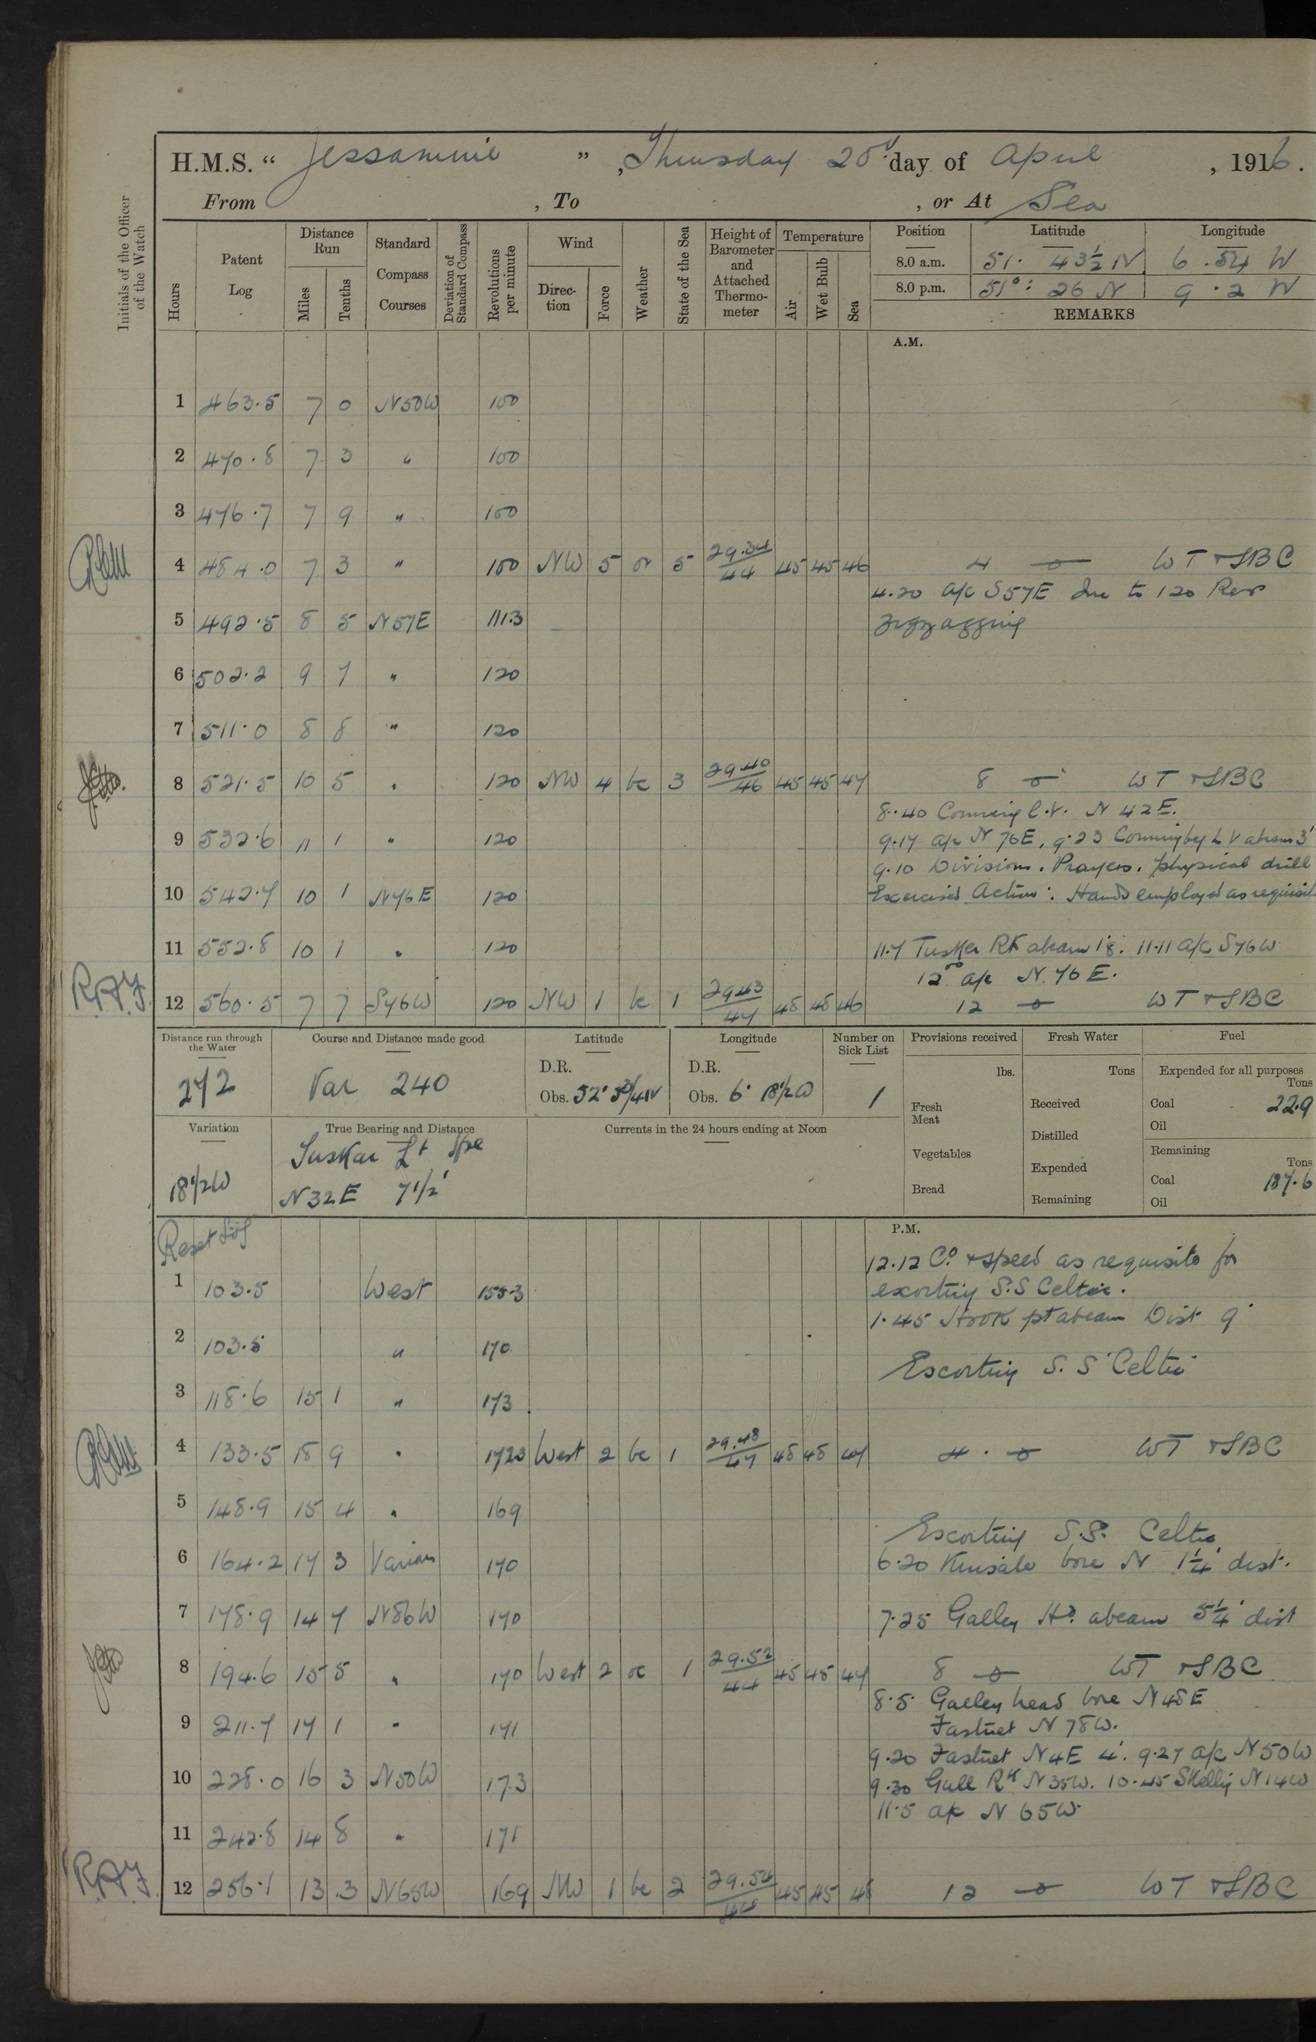 H.M.S. " Jessamine ", Thursday 20th day of April, 1916.
From , To , or At Sea
Initials of the Officer of the Watch
Hours Patent Log Distance Run Miles Tenths Standard Compass Courses Deviation of Standard Compass Revolutions per minute Wind Direction Force Weather State of the Sea Height of Barometer and Attached Thermometer Temperature Air Wet Bulb Sea
Position Latitude Longitude
8.0 a.m. 51° 43½ N 6.54 W
8.0 p.m. 51°: 26 N 9.2 W
REMARKS
A.M.
1 463.5 7 0 N50W 100
2 470.8 7 3 " 100
3 476.7 7 9 " 100
4 484.0 7 3 " 100 NW 5 or 5 29.34/44 45 45 46 4 WT & SBC
4.20 a/c S57E Inc to 120 Rev
5 492.5 8 5 N57E 111.3 Zigzagging
6 502.2 9 7 " 120
7 511.0 8 8 " 120
8 521.5 10 5 " 120 NW 4 bc 3 29.40/46 45 45 47 8 WT & SBC
8.40 Conning L.V. N 42 E.
9 532.6 11 1 " 120 9.17 a/c N 76E, 9.23 Conningbeg L V abeam 3'
9.10 Divisions. Prayers. physical drill
10 542.7 10 1 N76E 120 Exercised Action: Hands employed as requisite
11 552.8 10 1 " 120 11.7 Tusker Rk abeam 1.8. 11.11 a/c S76W
12 a/c N. 76 E.
12 560.5 7 7 S76W 120 NW 1 bc 1 29.43/47 48 48 46 12 WT & SBC
R.A.Y.
Distance run through the Water 272
Course and Distance made good Var 240
Latitude D.R. Obs. 52° 5¾N
Longitude D.R. Obs. 6° 18½W
Number on Sick List 1
Provisions received lbs. Fresh Meat Vegetables Bread
Fresh Water Tons Received Distilled Expended Remaining
Fuel Expended for all purposes Tons Coal 22.9 Oil
Remaining Tons Coal 187.6 Oil
Variation 18½W
True Bearing and Distance Tuskar Lt Hse
N32E 7½'
Currents in the 24 hours ending at Noon
P.M.
Reset Log
12.12 Co. & speed as requisite for
1 103.5 West 155.3 escorting S.S Celtic.
1.45 Hook pt abeam Dist 9'
2 103.5 " 170 Escorting S.S Celtic
3 118.6 15 1 " 173
4 133.5 15 9 " 172.3 West 2 bc 1 29.48/47 48 48 47 4. WT & SBC
5 148.9 15 4 " 169
Escorting S.S. Celtic
6 164.2 17 3 Various 170 6.20 Kinsale bore N 1¼' dist.
7 178.9 14 7 N86W 170 7.25 Galley Hd. abeam 5¼' dist
8 194.6 15 5 " 170 West 2 oc 1 29.52/44 45 45 47 8 WT & SBC
8.5 Galley head bore N48E
9 211.7 17 1 " 171 Fastnet N 78W.
9.20 Fastnet N4E 4'. 9.27 a/c N50W
10 228.0 16 3 N50W 173 9.30 Gull Rk N35W. 10.45 Skellig N14W
11.5 a/c N 65W.
11 242.8 14 8 " 171
12 256.1 13 3 N65W 169 NW 1 bc 2 29.54/44 45 45 48 12 WT & SBC
R.A.Y.